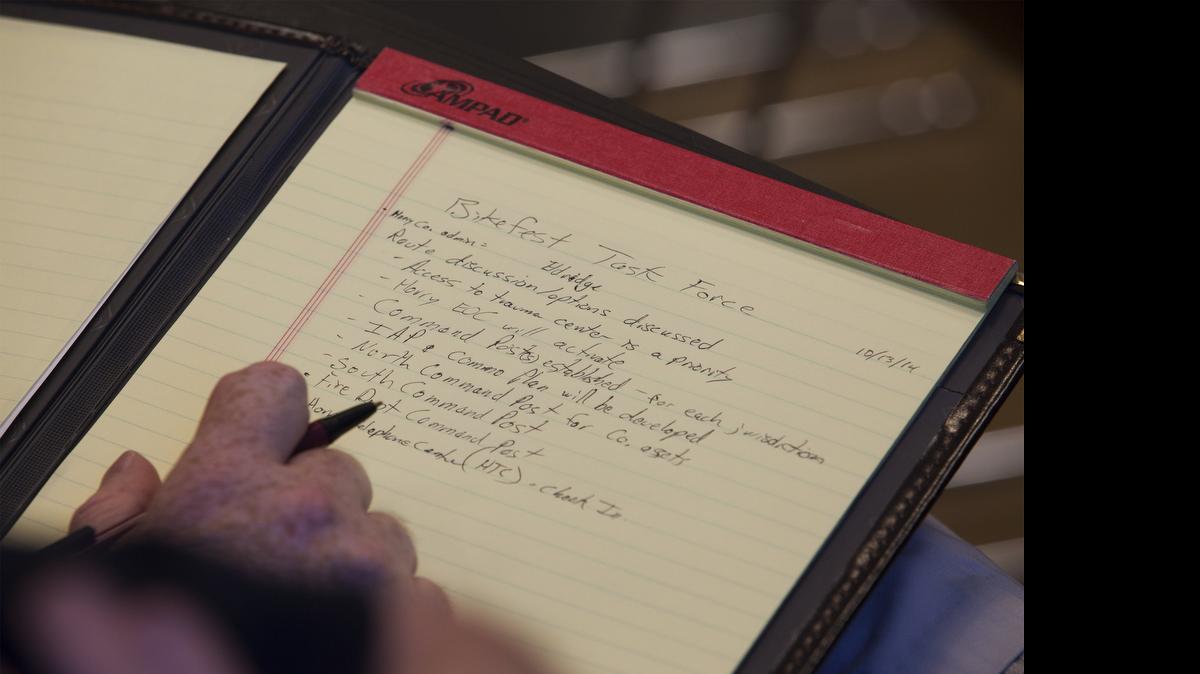 AMPAD®
Bikefest Task Force
10/13/14
Horry Co. admin: Eldridge
Route discussion/options discussed
- Access to trauma center is a priority
- Horry EOC will activate
- Command Post(s) established - for each jurisdiction
- IAP & Commo Plan will be developed
- North Command Post for Co. assets
- South Command Post
• Fire Dept Command Post
Telephone Center (HTC) - Check In